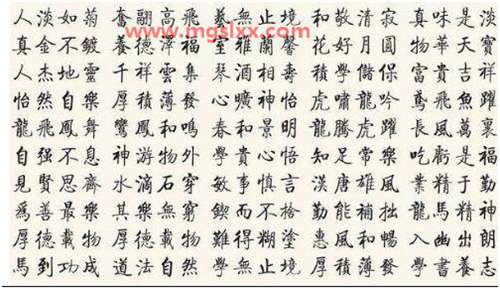 人淡如菊 奮翮高飛 藝無止境 和敬清寂 真味是淡
www.mgslxx.com
真金不鍍 養德 福 蘭馨 花好月圓 物華天寶
人杰地靈 千祥雲集 琴酒 壽 學儲 富貴吉祥
怡然自樂 厚積薄發 心曠神怡 虎嘯龍吟 鳶飛魚躍
龍飛鳳舞 鸞鳳和鳴 春和景明 龍騰虎躍 長風萬裏
自强不息 神游物外 學貴心悟 知足常樂 吃虧是福
見賢思齊 水滴石穿 敏事慎言 漢唐雄風 業精于勤
爲善最樂 其樂無窮 鍥而不捨 勤能補拙 龍馬精神
厚德載物 厚德載物 難得糊塗 惠風和暢 入幽出朗
馬到功成 道法自然 學無止境 厚積薄發 學書養志